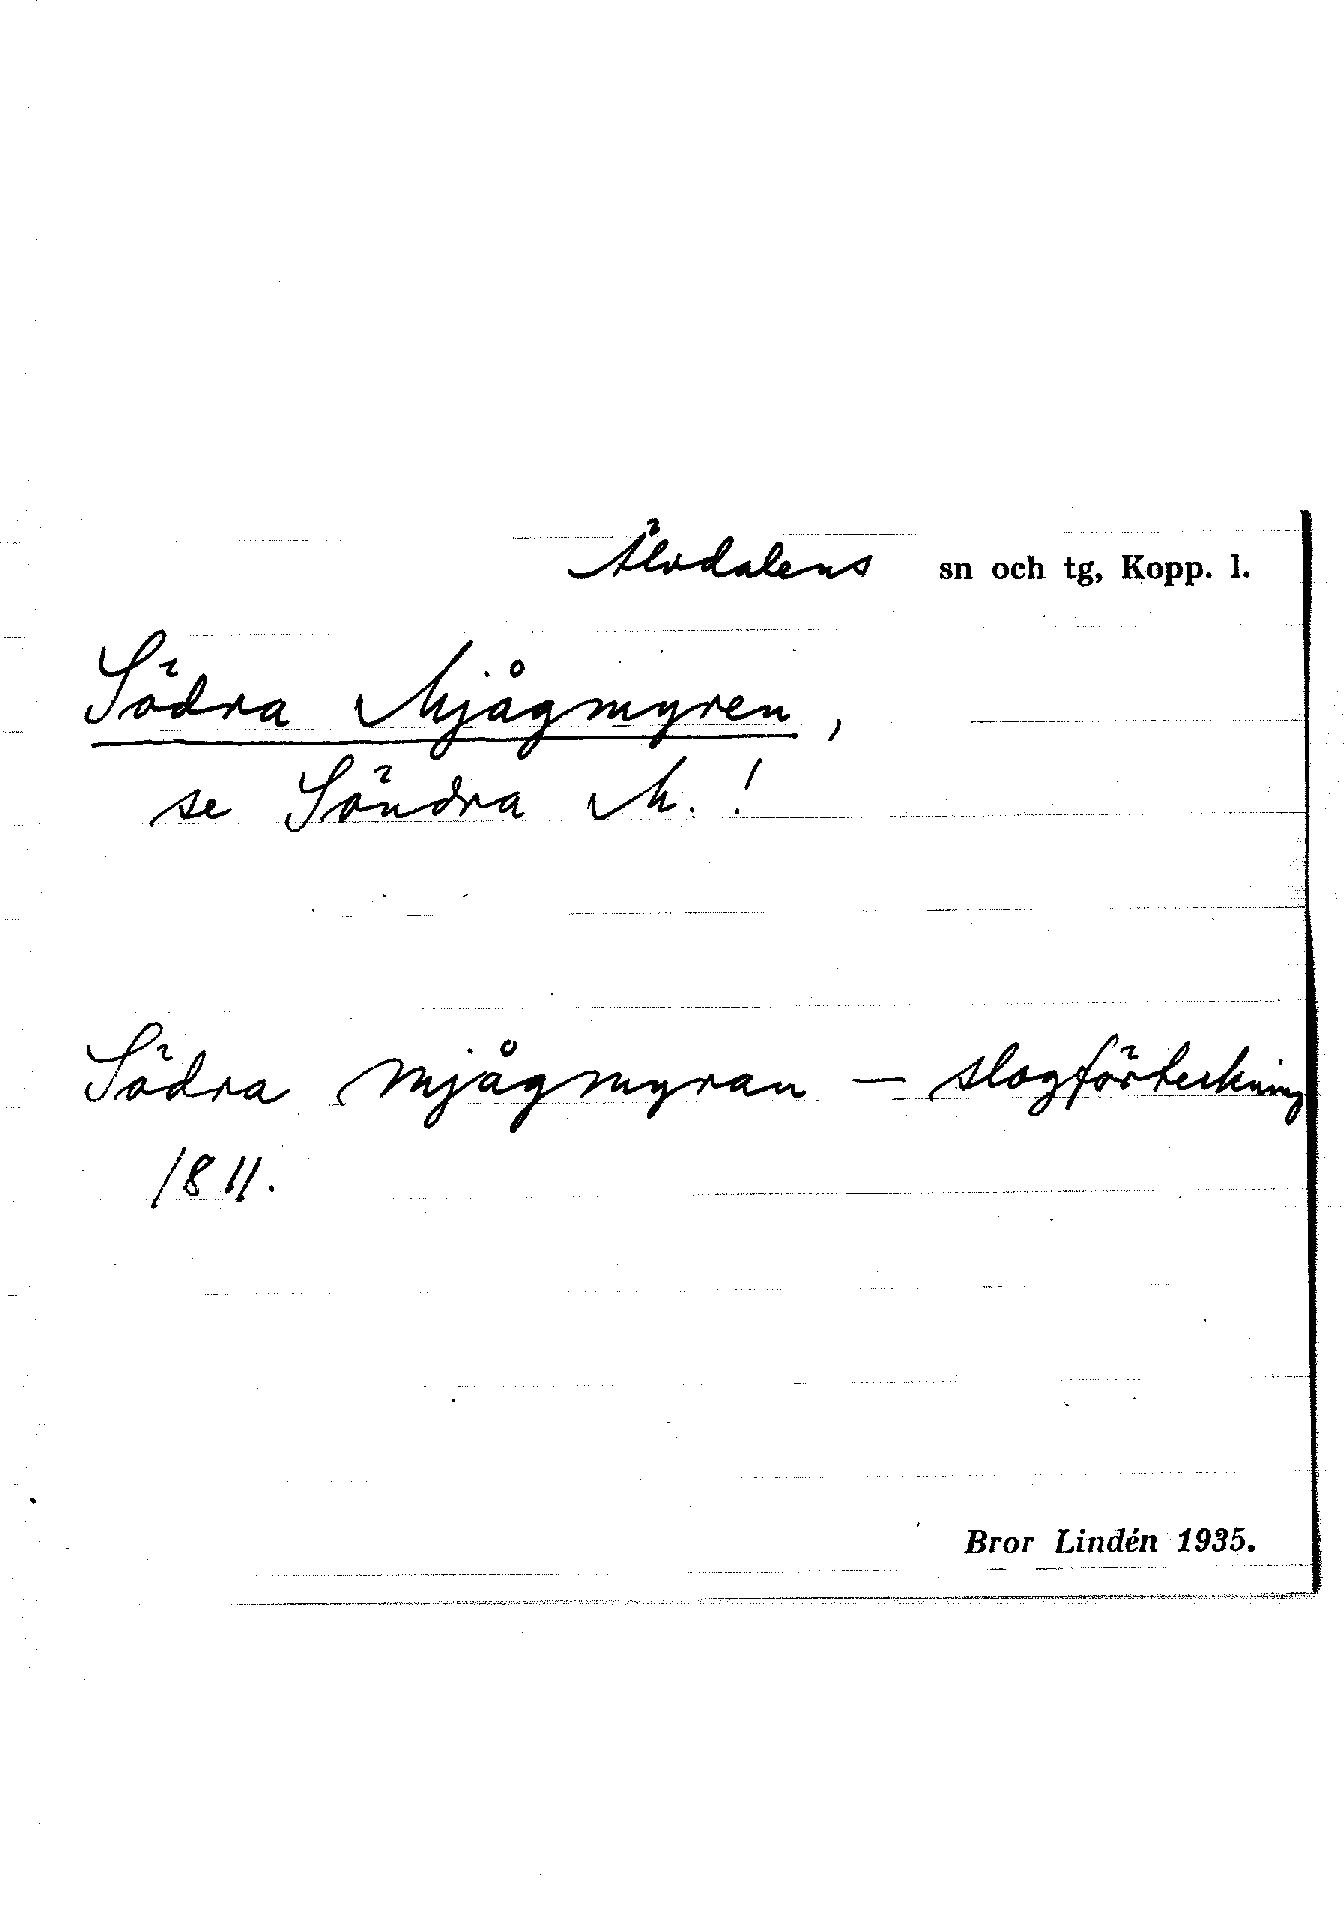 Älvdalens sn och tg, Kopp. l.
Södra Mjågmyren,
se Söndra M.!
Södra mjågmyran — slogförteckning
1811.
Bror Lindén 1935.